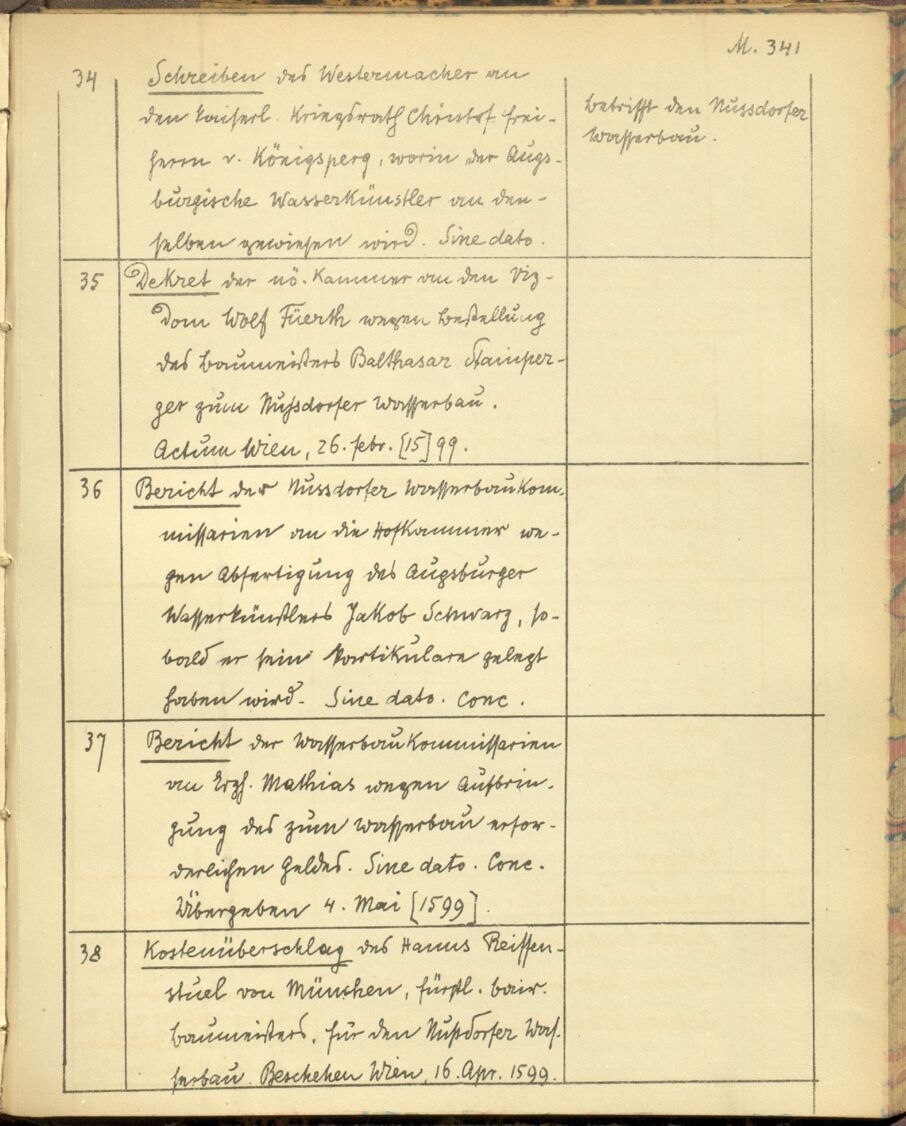 M. 341
34 Schreiben des Westermacher an
den kaiserl. Kriegsrath Christof Frei-
herrn v. Königsperg, worin der Augs-
burgische Wasserkünstler an den-
selben gewiesen wird. Sine dato.
betrifft den Nussdorfer
Wasserbau.
35 Dekret der nö. Kammer an den Viz-
dom Wolf Füerth wegen Bestellung
des Baumeisters Balthasar Stainper-
ger zum Nußdorfer Wasserbau.
Actum Wien, 26. febr. [15]99.
36 Bericht der Nussdorfer Wasserbaukom-
missarien an die Hofkammer we-
gen Abfertigung des Augsburger
Wasserkünstlers Jakob Schwarz, so-
bald er sein Partikulare gelegt
haben wird. Sine dato. Conc.
37 Bericht der Wasserbaukommissarien
an Erzh. Mathias wegen Aufbrin-
gung des zum Wasserbau erfor-
derlichen Geldes. Sine dato. Conc.
Übergeben 4. Mai [1599].
38 Kostenüberschlag des Hanns Reiffen-
stuel von München, fürstl. bair.
Baumeisters, für den Nußdorfer Was-
serbau. Beschehen Wien, 16. Apr. 1599.